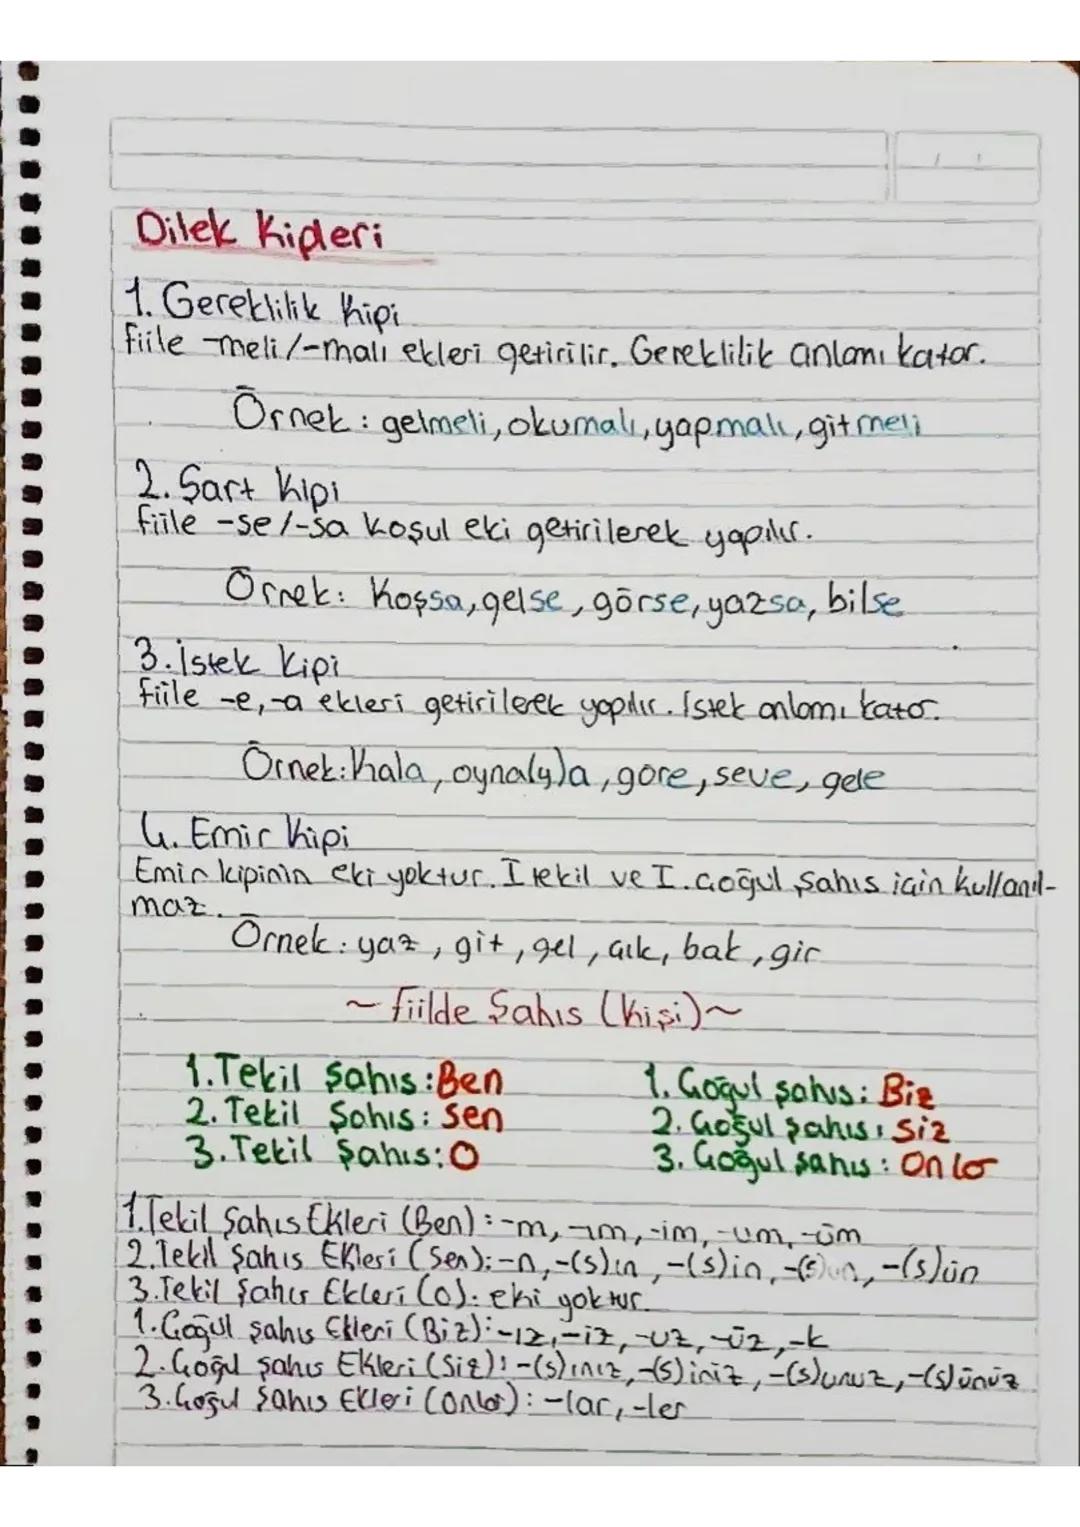 Dilek Kipleri
1. Gereklilik Kipi
fiile -meli/-malı ekleri getirilir. Gereklilik anlamı katar.
Örnek : gelmeli, okumalı, yapmalı, gitmeli
2. Şart Kipi
fiile -se/-sa koşul eki getirilerek yapılır.
Örnek: Koşsa, gelse, görse, yazsa, bilse
3. İstek Kipi
fiile -e, -a ekleri getirilerek yapılır. İstek anlamı katar.
Örnek: Kala, oyna(y)a, göre, seve, gele
4. Emir Kipi
Emir kipinin eki yoktur. I tekil ve I. Çoğul şahıs için kullanıl-
maz.
Örnek: yaz, git, gel, çık, bak, gir
~ fiilde Şahıs (Kişi) ~
1. Tekil Şahıs: Ben 1. Çoğul şahıs: Biz
2. Tekil Şahıs: Sen 2. Çoğul şahıs: Siz
3. Tekil Şahıs: O 3. Çoğul şahıs: Onlar
1. Tekil Şahıs Ekleri (Ben): -m, -ım, -im, -um, -üm
2. Tekil Şahıs Ekleri (Sen): -n, -(s)ın, -(s)in, -(s)un, -(s)ün
3. Tekil Şahıs Ekleri (O): eki yoktur.
1. Çoğul şahıs Ekleri (Biz): -ız, -iz, -uz, -üz, -k
2. Çoğul şahıs Ekleri (Siz): -(s)ınız, -(s)iniz, -(s)unuz, -(s)ünüz
3. Çoğul Şahıs Ekleri (Onlar): -lar, -ler